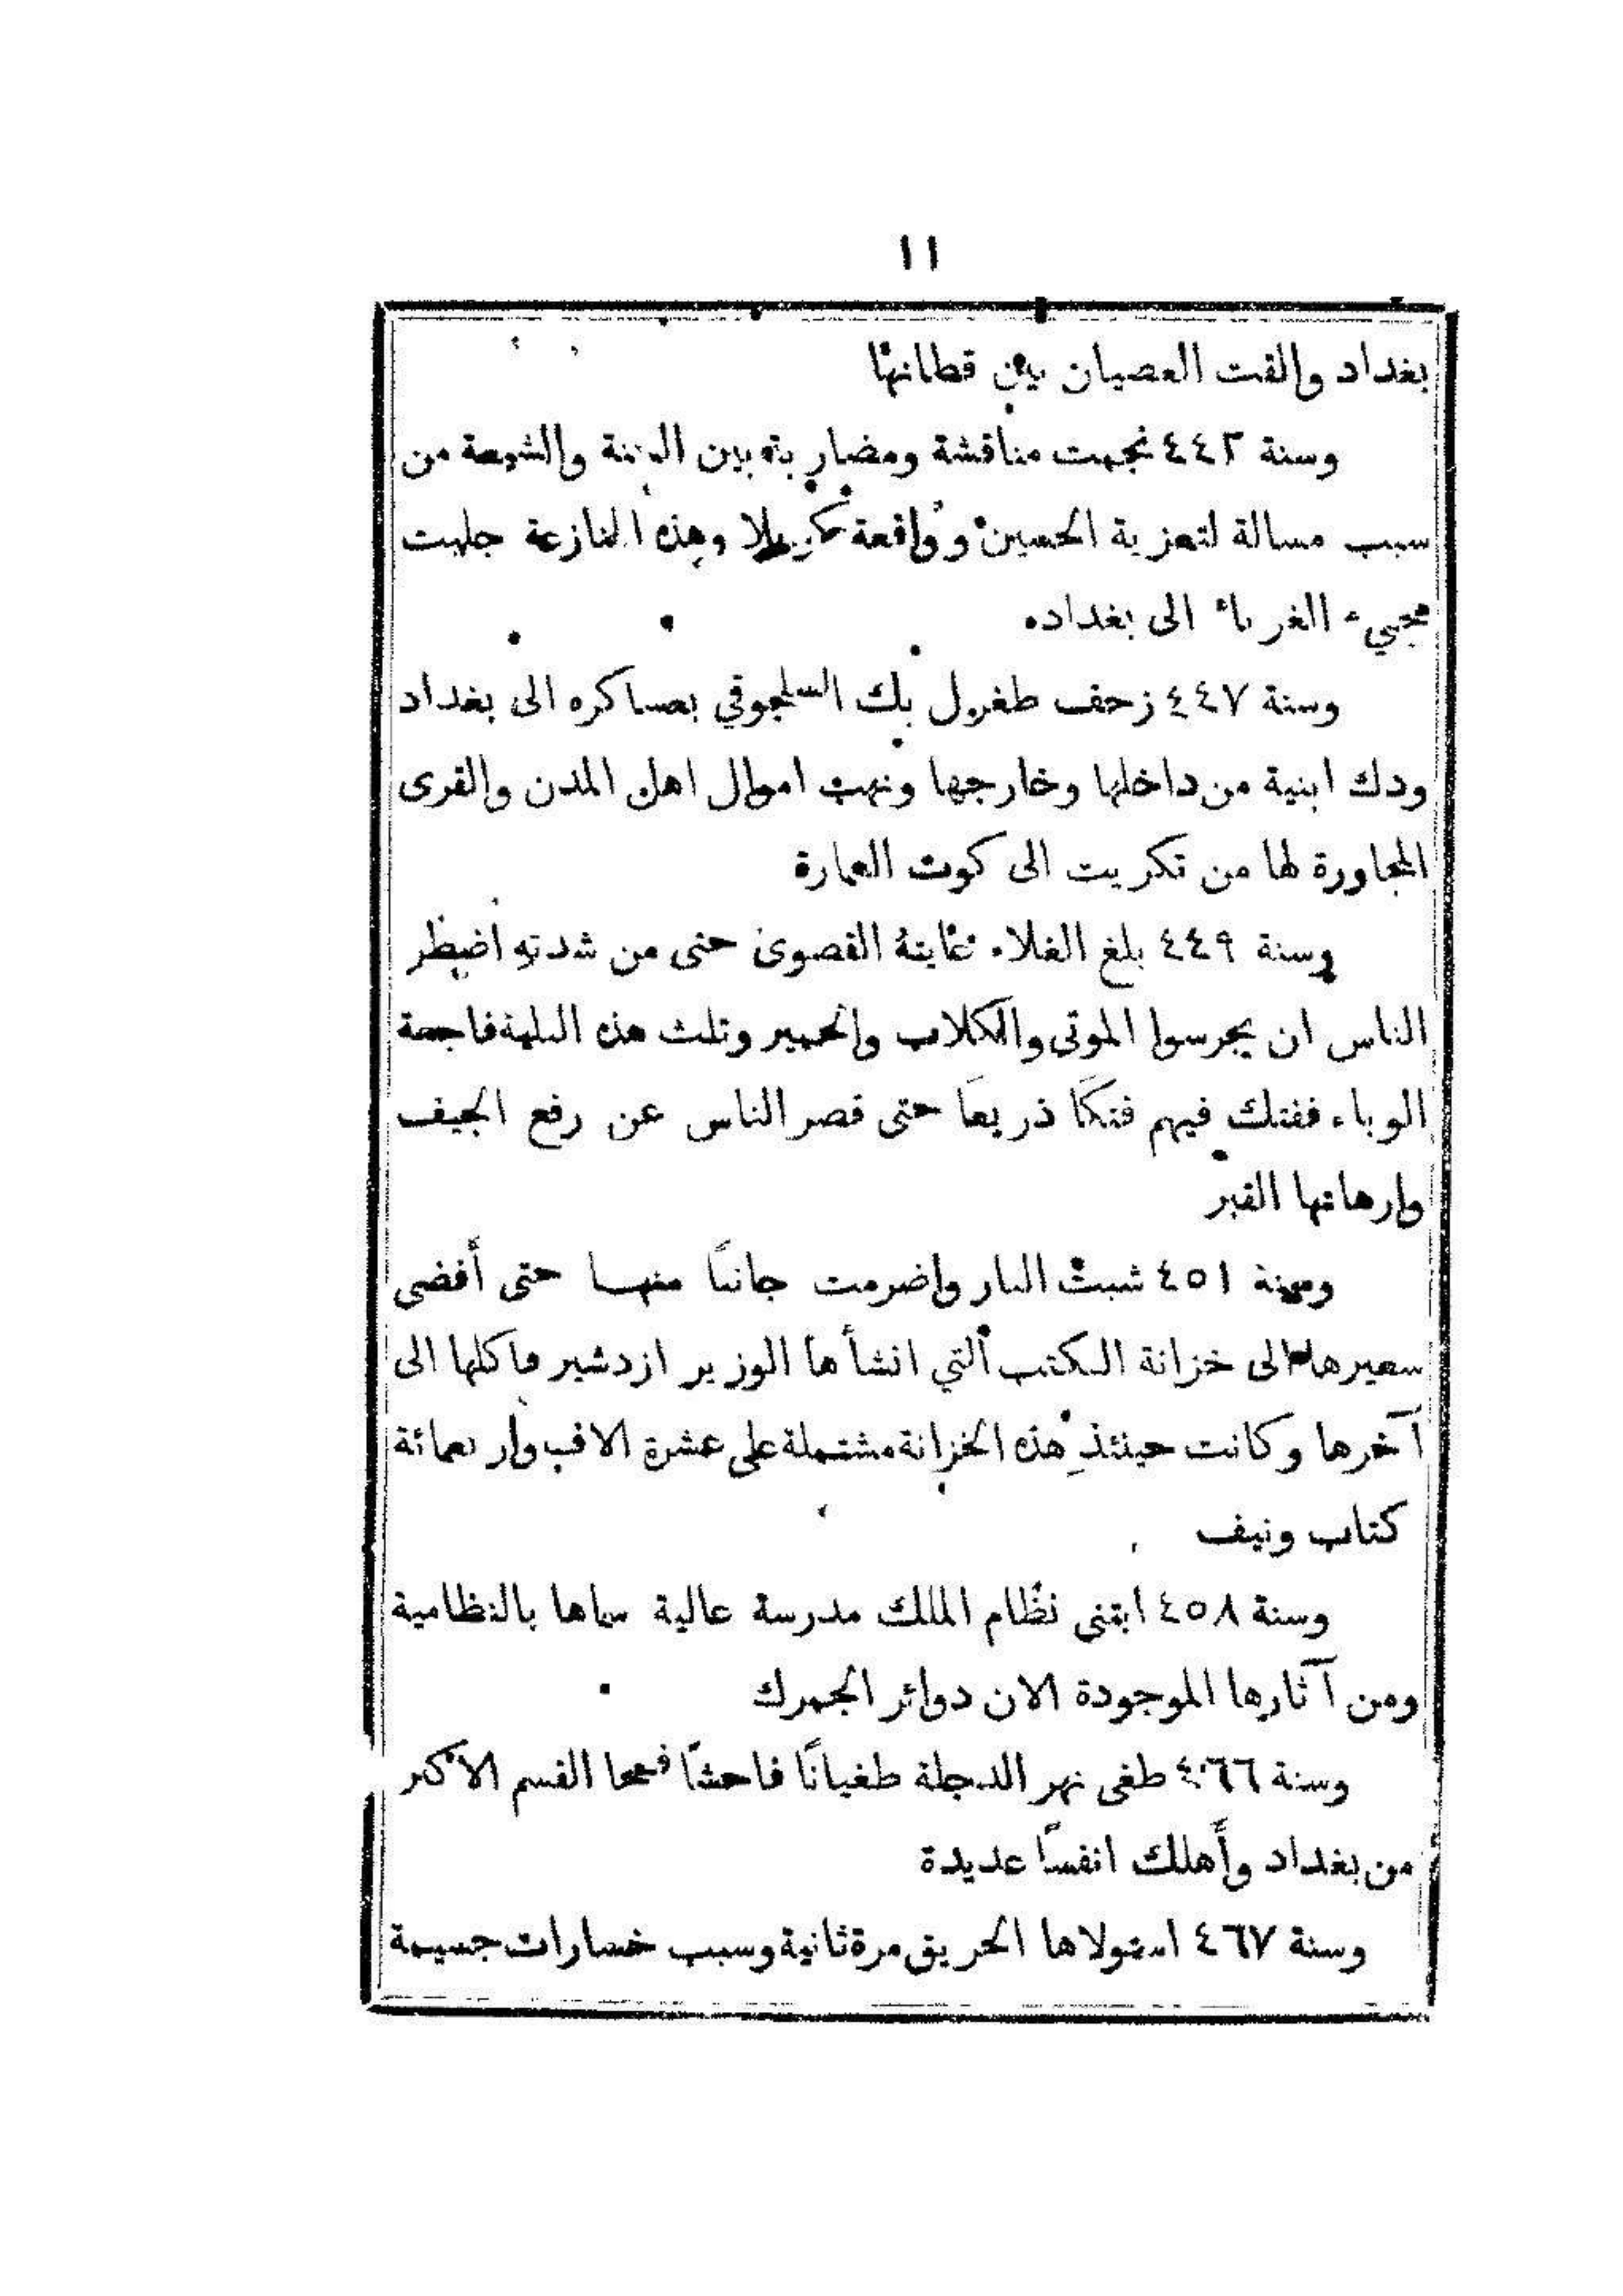 ١١
بغداد والقت العصيان بين قطانها
وسنة ٤٤٢ نجمت مناقشة ومضاربة بين السنة والشيعة من
سبب مسالة لتعزية الحسين وواقعة كربلا وهذه المنازعة جلبت
مجيء الغرباء الى بغداد
وسنة ٤٤٧ زحف طغرل بك السلجوقي بعساكره الى بغداد
ودك ابنية من داخلها وخارجها ونهب اموال اهل المدن والقرى
المجاورة لها من تكريت الى كوت العمارة
وسنة ٤٤٩ بلغ الغلاء غايتة القصوى حتى من شدته اضطر
الناس ان يجرسوا الموتى والكلاب والحمير وتلت هذه البلية فاجعة
الوباء ففتك فيهم فتكًا ذريعًا حتى قصر الناس عن رفع الجيف
وارهانها القبر
وسنة ٤٥١ شبت النار واضرمت جانبًا منها حتى أفضى
سعيرها الى خزانة الكتب التي انشأها الوزير ازدشير فاكلها الى
آخرها وكانت حينئذٍ هذه الخزانة مشتملة على عشرة الاف واربعمائة
كتاب ونيف
وسنة ٤٥٨ ابتنى نظام الملك مدرسة عالية سماها بالنظامية
ومن آثارها الموجودة الان دوائر الجمرك
وسنة ٤٦٦ طغى نهر الدجلة طغيانًا فاحشًا فمحا القسم الاكبر
من بغداد وأهلك انفسًا عديدة
وسنة ٤٦٧ استولاها الحريق مرة ثانية وسبب خسارات جسيمة